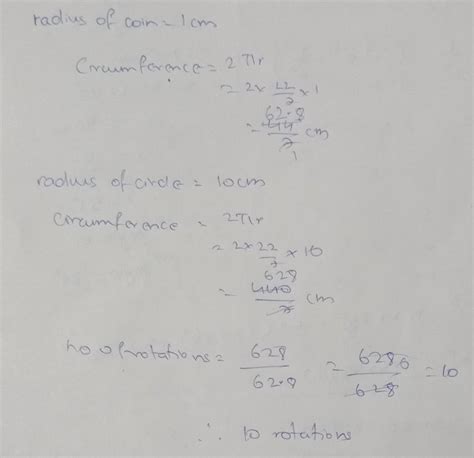 radius of coin = 1cm
Circumference = 2πr
= 2 × 22/7 × 1
62.8
= 44/7 cm
1
radius of circle = 10cm
circumference = 2πr
= 2 × 22/7 × 10
628
= 440/7 cm
no of rotations = 628/62.8 = 6280/628 = 10
∴ 10 rotations